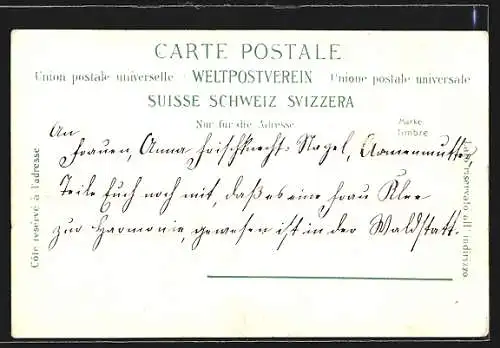 CARTE POSTALE
Union postale universelle WELTPOSTVEREIN Unione postale universale
SUISSE SCHWEIZ SVIZZERA
Nur für die Adresse
Marke
Timbre
Côté réservé à l'adresse
Lato riservato all' indirizzo
An
Frauen, Anna Frischknecht-Nagel, Armenmutter
Teile Euch noch mit, daß es eine Frau Klee
zur Harmonie, gewesen ist in der Waldstatt.